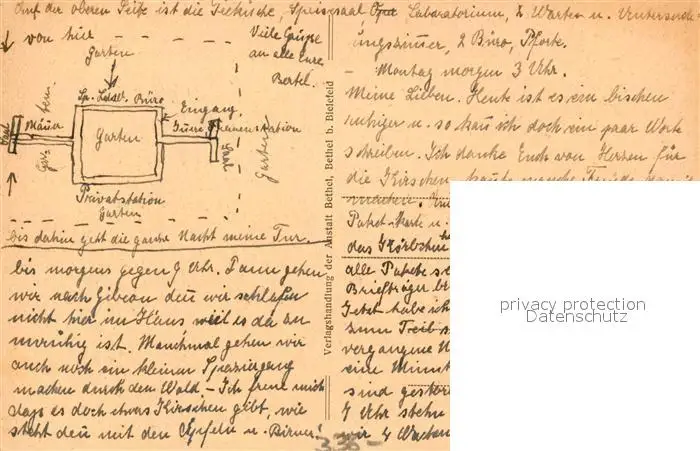 Auf der oberen Seite ist die Teeküche, Speisesaal, Laboratorium, 2 Warten u. Untersuch-
von hier
ungszimmer, 2 Büro, Pforte.
Garten
Viele Grüsse
an alle Eure
Bertel.
Sp. Büro
Eingang
Männer
Garten
Frauenstation
Saal
Saal
Garten
Privatstation
Garten
bis dahin geht die ganze Nacht meine Tur
bis morgens gegen 9 Uhr. Dann gehen
wir nach Gibeon den wir schlafen
nicht hier im Haus weil es da zu
unruhig ist. Manchmal gehen wir
auch noch ein kleinen Spaziergang
machen durch den Wald – Ich freue mich
dass es doch etwas Kirschen gibt, wie
steht den mit den Äpfeln u. Birnen?
Verlagshandlung der Anstalt Bethel, Bethel b. Bielefeld
– Montag morgen 3 Uhr.
Meine Lieben. Heute ist es ein bischen
ruhiger u. so kan ich doch ein paar Worte
schreiben. Ich danke Euch von Herzen für
die Kirschen
machen.
Paket-Karte u.
das Körbchen
alle Pakete
Briefträger
Jetzt habe ich
zum
vergangene
eine
sind gestor
4 Uhr stehn
wir 4 Wachen
privacy protection
Datenschutz
3.30-